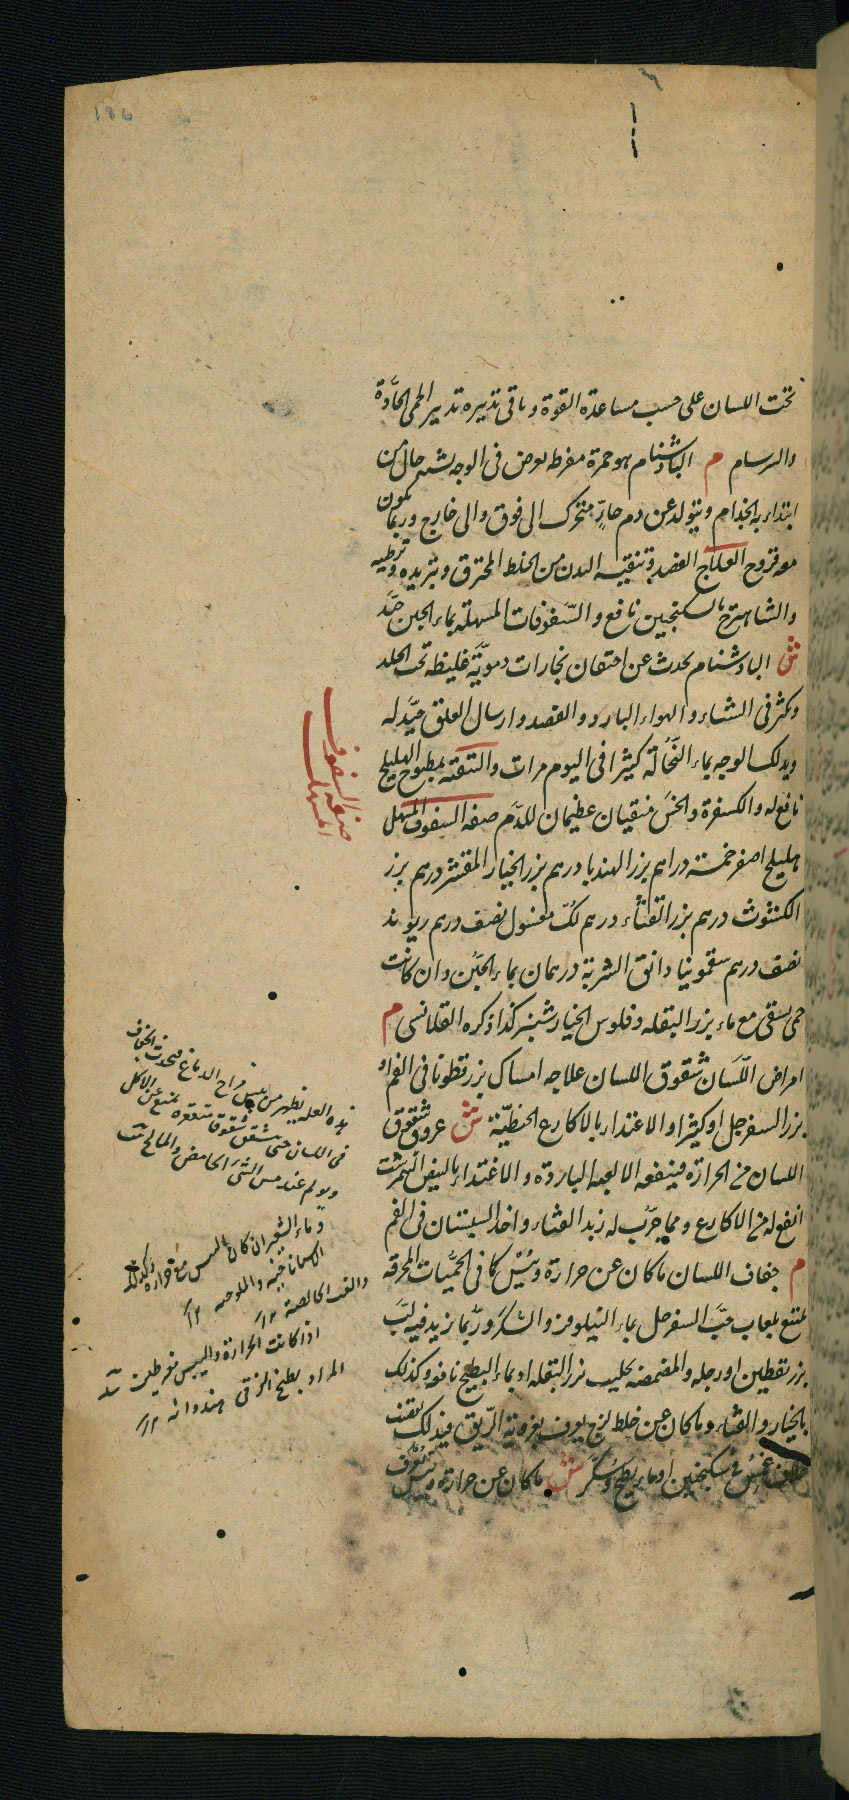 186
تحت اللسان على حسب مساعدة القوة وباقى تدبيره تدبير الحمى الحادّة
والسرسام م البادشنام هو حمرة مفرطه تعرض فى الوجه يشبه حال من
ابتداء به الجذام ويتولد عن دم حارّ متحرك الى فوق والى خارج وربما يكون
معه قروح العلاج الفصد وتنقيه البدن من الخلط المحترق وتبريده وترطيبه
والشاهترج بالسكنجبين نافع والسّفوفات المسهلة بماء الجبن جيّد
ش البادشنام يحدث عن احتقان بخارات دمويّة غليظه تحت الجلد
وكثر فى الشتاء والهواء البارد والفصد وارسال العلق جيّد له
ويدلك الوجه بماء النّخالة كثيرا فى اليوم مرات والتنقيه بمطبوخ الهليلج
نافع له والكسفرة والخسّ منقيان عظيمان للدّم صفه السفوف المسهل
هليلج اصفر خمسة دراهم بزر الهندبا درهم بزر الخيار المقشر درهم بزر
الكشوث درهم بزر القثّاء درهم لكّ مغسول نصف درهم ريوند
نصف درهم سقمونيا دانق الشربة درهمان بماء الجبن وان كانت
حمى يسقى مع ماء بزر البقله وفلوس الخيار شنبر كذا ذكره القلانسى م
امراض اللّسان شقوق اللسان علاجه امساك بزر قطونا فى الفم او
بزر السفرجل او كثيرا والاغتداء بالاكارع الحنطيّة ش عروق شقوق
اللسان من الحرارة فينفعه الالعبه الباردة والاغتداء بالبيض النيمرشت
انفع له من الاكارع ومما جرّب له زبد القثاء واخذ السبستان فى الفم
م جفاف اللسان ما كان عن حرارة ويبس كما فى الحمّيات المحرقه
بلعاب حبّ السفرجل بماء النيلوفر والسّكر وربما زيد فيه لبّ
بزر يقطين او رجله والمضمضه بحليب بزر البقله او بماء البطيخ نافع وكذلك
بالخيار والقثاء وما كان عن خلط لزج يعرف بلزوجة الرّيق فيدلك
سكنجبين او ماء بطيخ وسكر ش ما كان عن حرارة ويبس
صفه السفوف
المسهل
هذه العله يظهر من يبس مزاج الدماغ فيحدث الجفاف
فى اللسان حتى يتشقق شقوقا متقعره يمنع عن الاكل
ويولم عند مس الشئ الحامض والمالح
وماء الشعير ان كان اليبس مع حرارة وكذلك
اذا كانت الحرارة واليبس مفرطين
المراد بطيخ الزقى هندوانه ١٢